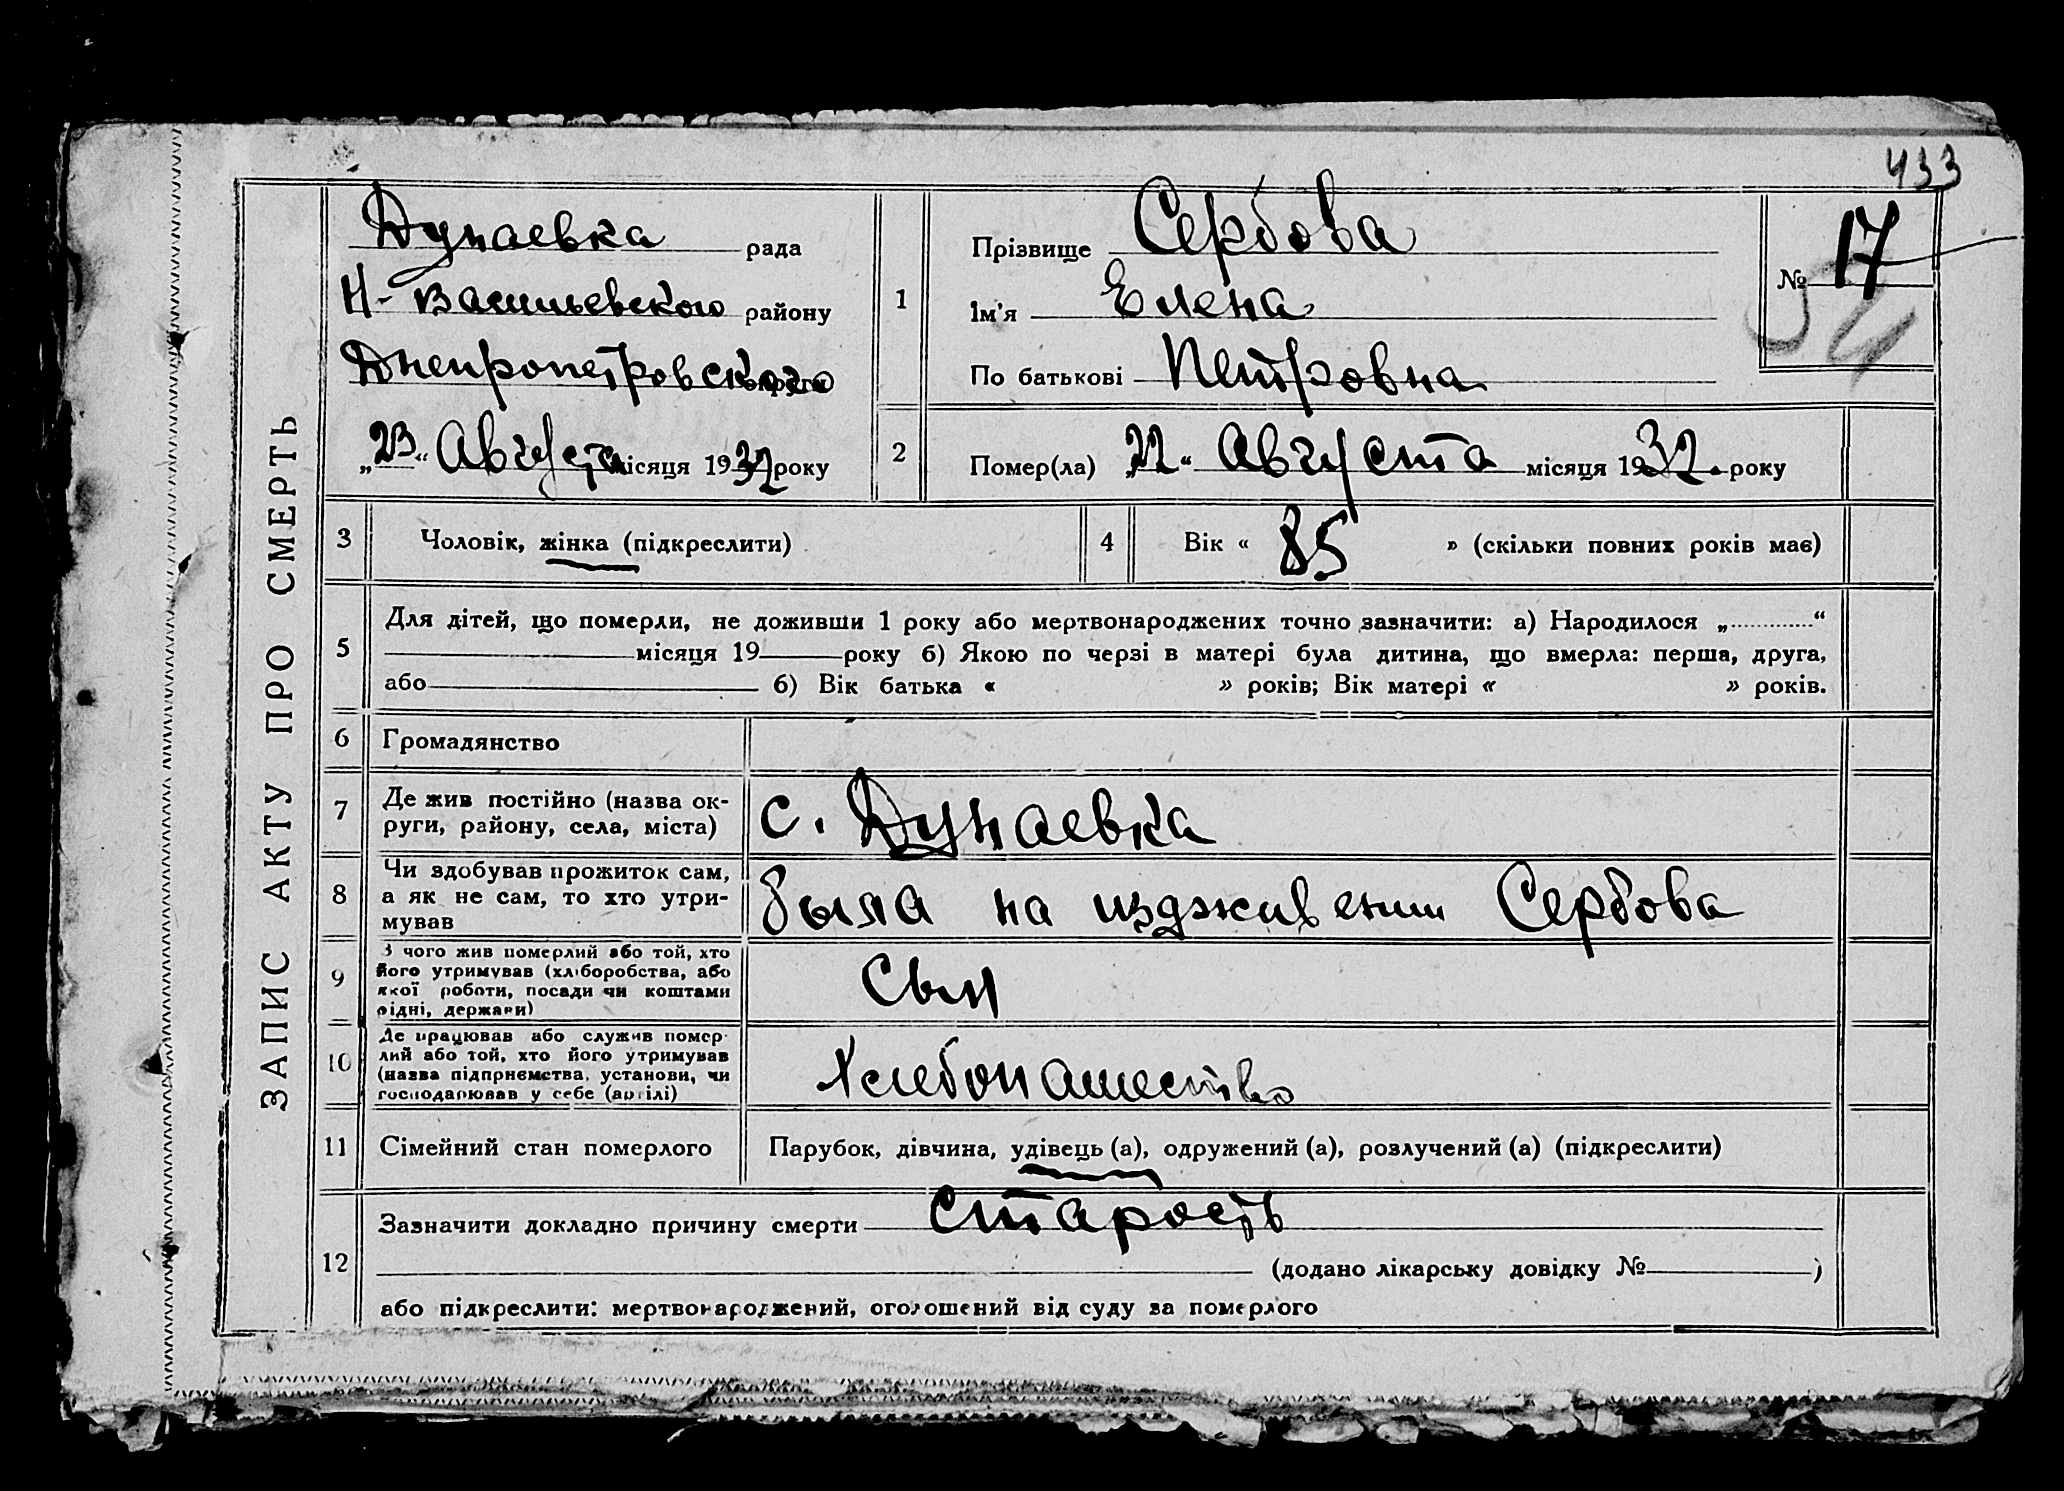 433
ЗАПИС АКТУ ПРО СМЕРТЬ
Дунаевка рада
Н-Васильевского району
Днепропетровского
„23“ Августа місяця 1932 року
1
Прізвище Сербова
Ім'я Елена
По батькові Петровна
№ 17
2
Помер(ла) „22“ Августа місяця 1932. року
3 Чоловік, жінка (підкреслити)
4 Вік « 85 » (скільки повних років має)
5
Для дітей, що померли, не доживши 1 року або мертвонароджених точно зазначити: а) Народилося „............“
місяця 19 року б) Якою по черзі в матері була дитина, що вмерла: перша, друга,
або б) Вік батька « » років; Вік матері « » років.
6 Громадянство
7 Де жив постійно (назва ок-
руги, району, села, міста)
с. Дунаевка
8 Чи здобував прожиток сам,
а як не сам, то хто утри-
мував
была на издживении Сербова
9 З чого жив померлий або той, хто
його утримував (хліборобства, або
якої роботи, посади чи коштами
рідні, держави)
Сын
10 Де працював або служив помер-
лий або той, хто його утримував
(назва підприємства, установи, чи
господарював у себе (артілі)
Хлебопашество
11 Сімейний стан померлого
Парубок, дівчина, удівець (а), одружений (а), розлучений (а) (підкреслити)
12
Зазначити докладно причину смерти старость
(додано лікарську довідку № )
або підкреслити: мертвонароджений, оголошений від суду за померлого